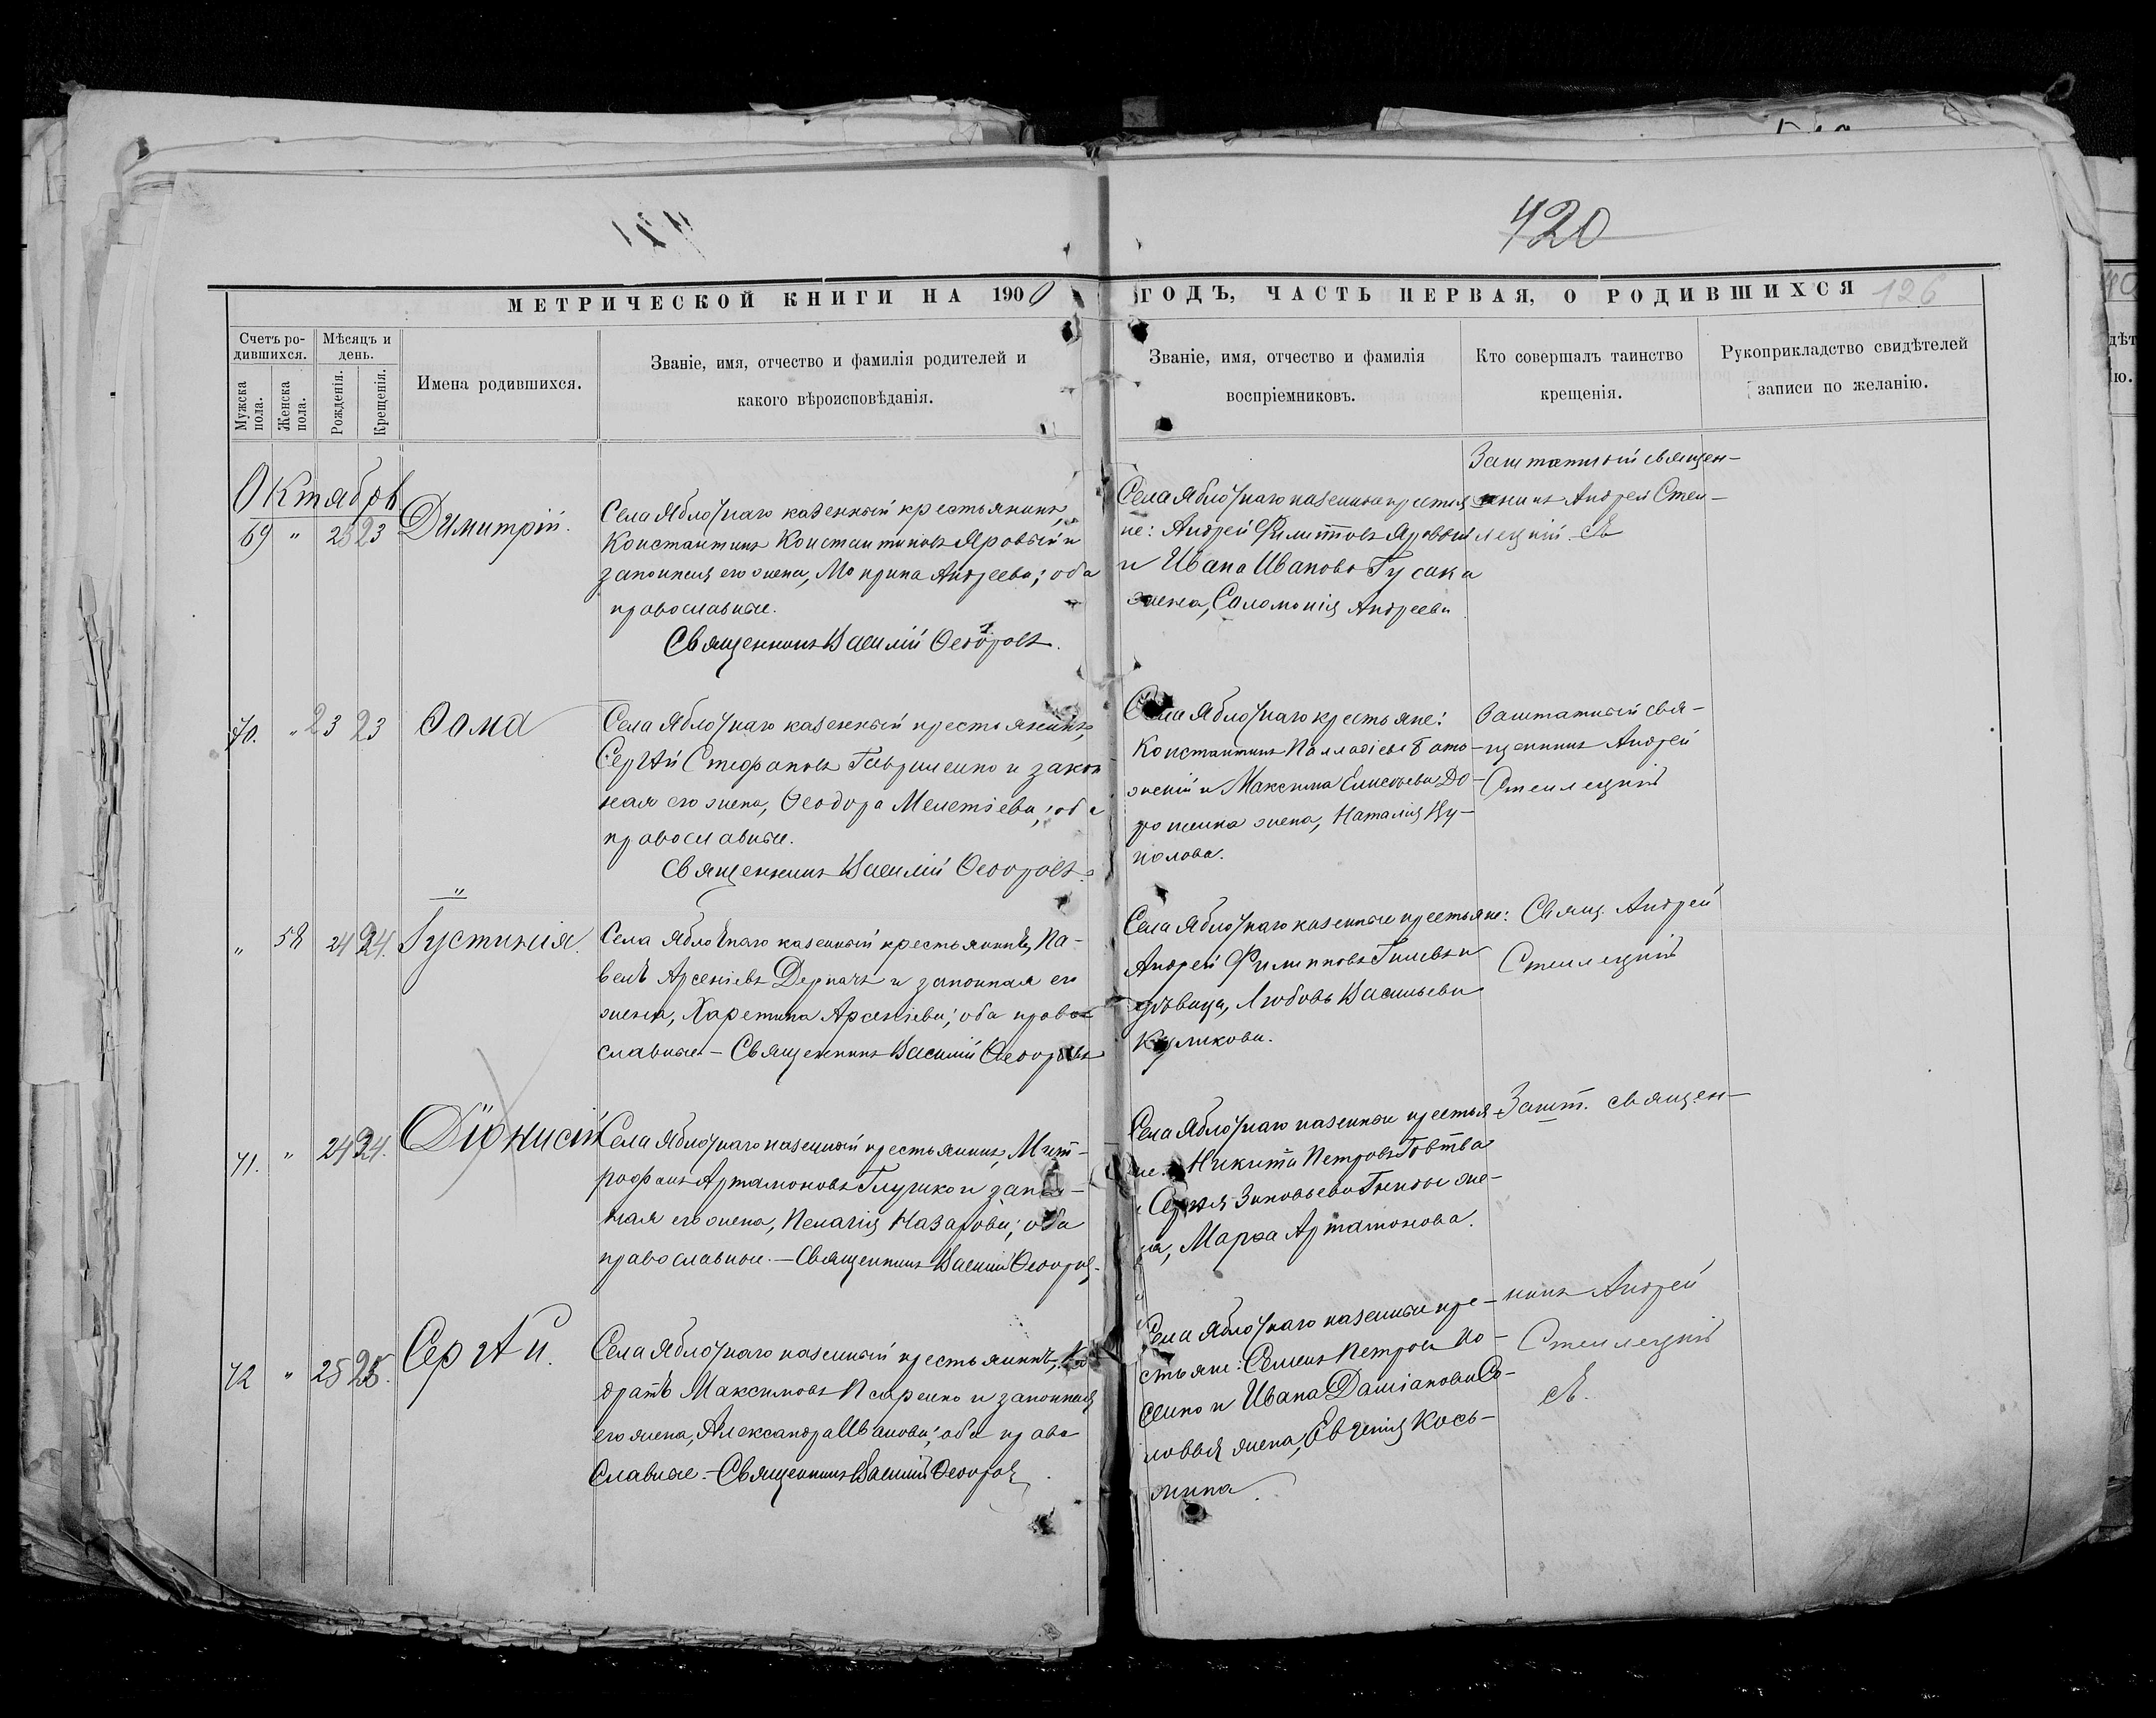 420
МЕТРИЧЕСКОЙ КНИГИ НА 1900
ГОДЪ, ЧАСТЬ ПЕРВАЯ, О РОДИВШИХСЯ
126
Счетъ ро-
дившихся.
Мѣсяцъ и
день.
Мужска
пола.
Женска
пола.
Рожденія.
Крещенія.
Имена родившихся.
Званіе, имя, отчество и фамилія родителей и
какого вѣроисповѣданія.
Званіе, имя, отчество и фамилія
воспріемниковъ.
Кто совершалъ таинство
крещенія.
Рукоприкладство свидѣтелей
записи по желанію.
Октябрь
69 " 23 23
Димитрій.
Села Яблочнаго казенный крестьянинъ,
Константинъ Константиновъ Яровый и
законная его жена, Мокрина Андреева; оба
православные.
Священникъ Василій Ѳеодоровъ.
Села Яблочнаго казенные крестья
не: Андрей Филипповъ Яровый
и Ивана Иванова Гусака
жена, Соломонія Андреева
Заштатный священ-
никъ Андрей Стел-
лецкій.
70. " 23 23
Ѳома
Села Яблочнаго казенный крестьянинъ,
Сергѣй Стефановъ Гавриленко и закон
ная его жена, Ѳеодора Мелетіева; оба
православные.
Священникъ Василій Ѳеодоровъ.
Села Яблочнаго крестьяне:
Константинъ Палладіевъ
и Максима Елисеева До-
рошенка жена, Наталія
Заштатный свя-
щенникъ Андрей
Стеллецкій
" 58 24 24.
Іустинія.
Села Яблочнаго казенный крестьянинъ, Па-
велъ Арсеніевъ Деркачъ и законная его
жена, Харетина Арсеніева; оба право
славные - Священникъ Василій Ѳеодоровъ
Села Яблочнаго казенные крестьяне:
Андрей Филипповъ и
дѣвица, Любовь Васильева
Куликова.
Свящ. Андрей
Стеллецкій
71. " 24 24.
Діонисій
Села Яблочнаго казенный крестьянинъ, Мит-
рофанъ Артамоновъ Глушко и закон-
ная его жена, Пелагія Назарова; оба
православные. - Священникъ Василій Ѳеодоровъ
Села Яблочнаго казенные крестья
не: Никита Петровъ Говтва
и Сергѣя Зиновьева же-
на, Марѳа Артамонова.
Зашт. священ-
72 " 25 25.
Сергѣй.
Села Яблочнаго казенный крестьянинъ, Ко
дратъ Максимовъ Писаренко и законная
его жена, Александра Иванова; оба право
славные. - Священникъ Василій Ѳеодоровъ
Села Яблочнаго казенные кре-
стьяне: Семенъ Петровъ
и Ивана Даміанова Со-
ловья жена, Евгенія Кось-
мина
никъ Андрей
Стеллецкій